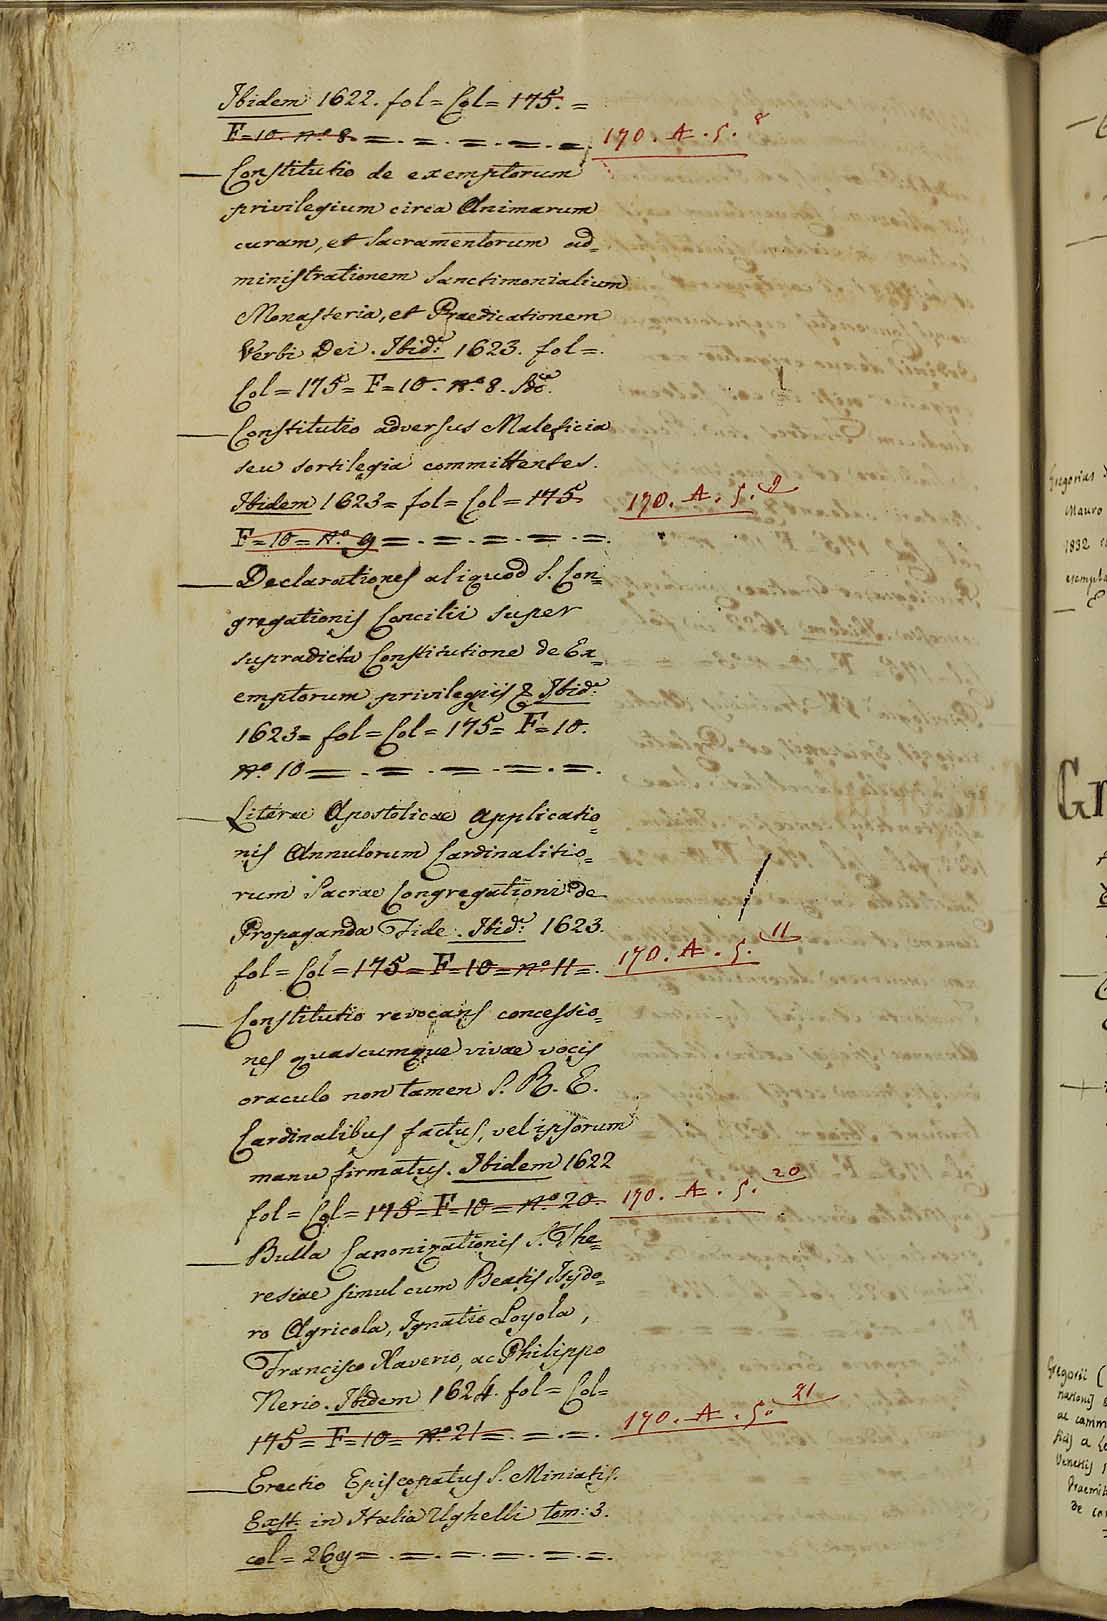 Ibidem 1622. fol = Col = 175. =
F = 10. N.º 8. = . = . = . = . = 170. A. 5. 8
— Constitutio de exemptorum
privilegium circa Animarum
curam, et Sacramentorum ad=
ministrationem Sanctimonialium
Monasteria, et Praedicationem
Verbi Dei. Ibid.ᵉ 1623. fol = .
Col = 175 = F = 10. N.º 8.
— Constitutio adversus Maleficia
seu sortilegia committentes.
Ibidem 1623 = fol = Col = 175 170. A. 5. 9
F = 10 = N.º 9 = . = . = . = . = .
— Declarationes aliquod S. Con=
gregationis Concilii super
supradicta Constitutione de Ex=
emptorum privilegiis & Ibid.ᵉ
1623 = fol = Col = 175 = F = 10.
N.º 10 = . = . = . = . = .
— Literae Apostolicae applicatio=
nis Annulorum Cardinalitio=
rum Sacrae Congregationi de
Propaganda Fide. Ibid.ᵉ 1623.
fol = Col = 175 = F = 10 = N.º 11 = . 170. A. 5. 11
— Constitutio revocans concessio=
nes quascumque vivae vocis
oraculo non tamen S. R. E.
Cardinalibus factus, vel ipsorum
manu firmatus. Ibidem 1622
fol = Col = 175 = F = 10 = N.º 20. 170. A. 5. 20
— Bulla Canonizationis S. The=
resiae simul cum Beatis Isydo=
ro Agricola, Ignatio Loyola,
Francisco Xaverio, ac Philippo
Nerio. Ibidem 1624. fol = Col =
175 = F = 10 = N.º 21 = . = . = . 170. A. 5. 21
— Erectio Episcopatus S. Miniatis.
Exst. in Italia Ughelli tom: 3.
col = 269 = . = . = . = . = .
Gregorius
Mauro
1832
Gr
Gregorii
Venetiis